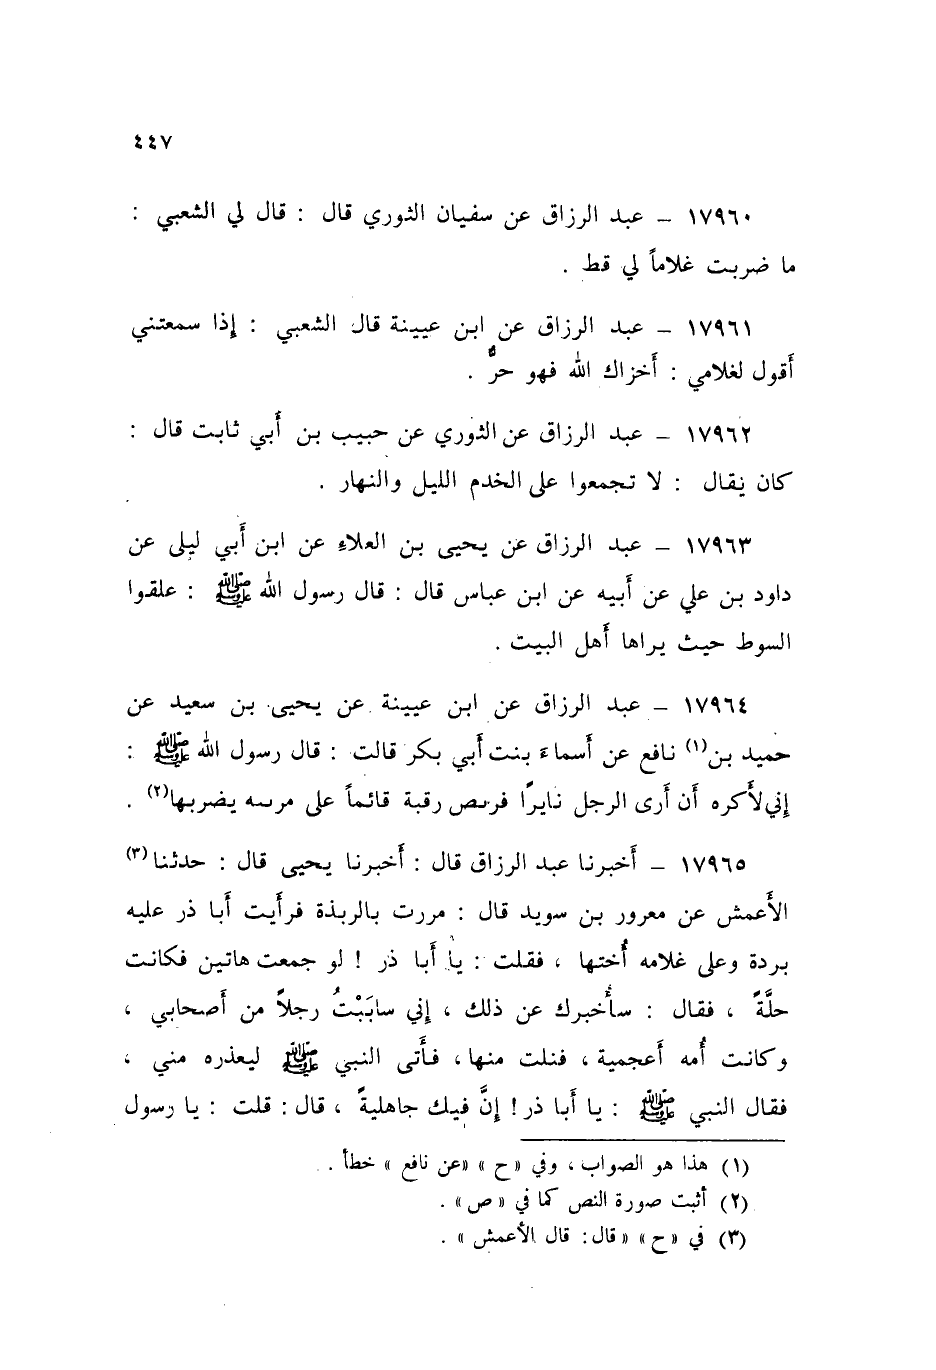 ٤٤٧
١٧٩٦٠ – عبد الرزاق عن سفيان الثوري قال : قال لي الشعبي :
ما ضربت غلاماً لي قط .
١٧٩٦١ – عبد الرزاق عن ابن عيينة قال الشعبي : إذا سمعتني
أقول لغلامي : أخزاك الله فهو حرٌّ .
١٧٩٦٢ – عبد الرزاق عن الثوري عن حبيب بن أبي ثابت قال :
كان يقال : لا تجمعوا على الخدم الليل والنهار .
١٧٩٦٣ – عبد الرزاق عن يحيى بن العلاء عن ابن أبي ليلى عن
داود بن علي عن أبيه عن ابن عباس قال : قال رسول الله ﷺ : علقوا
السوط حيث يراها أهل البيت .
١٧٩٦٤ – عبد الرزاق عن ابن عيينة عن يحيى بن سعيد عن
حميد بن(١) نافع عن أسماء بنت أبي بكر قالت : قال رسول الله ﷺ :
إني لأكره أن أرى الرجل نايرًا فريص رقبة قائماً على مريه يضربها(٢) .
١٧٩٦٥ – أخبرنا عبد الرزاق قال : أخبرنا يحيى قال : حدثنا(٣)
الأعمش عن معرور بن سويد قال : مررت بالربذة فرأيت أبا ذر عليه
بردة وعلى غلامه أُختها ، فقلت : يا أبا ذر ! لو جمعت هاتين فكانت
حلَّةً ، فقال : سأُخبرك عن ذلك ، إني سابَبْتُ رجلاً من أصحابي ،
وكانت أُمه أعجمية ، فنلت منها ، فأتى النبي ﷺ ليعذره مني ،
فقال النبي ﷺ : يا أبا ذر ! إنَّ فيك جاهليةً ، قال : قلت : يا رسول
(١) هذا هو الصواب ، وفي « ح » «عن نافع » خطأ .
(٢) أثبت صورة النص كما في « ص » .
(٣) في « ح » « قال : قال الأعمش » .